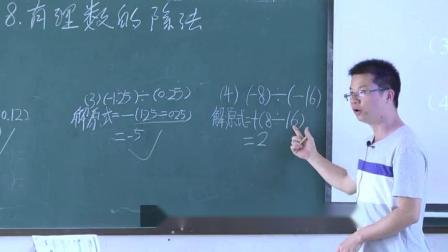 8.有理数的除法
0.12)
(3)(-1.25)÷(0.25)
解原式=-(1.25÷0.25)
=-5
(4) (-8)÷(-16)
解原式=+(8÷16)
=2